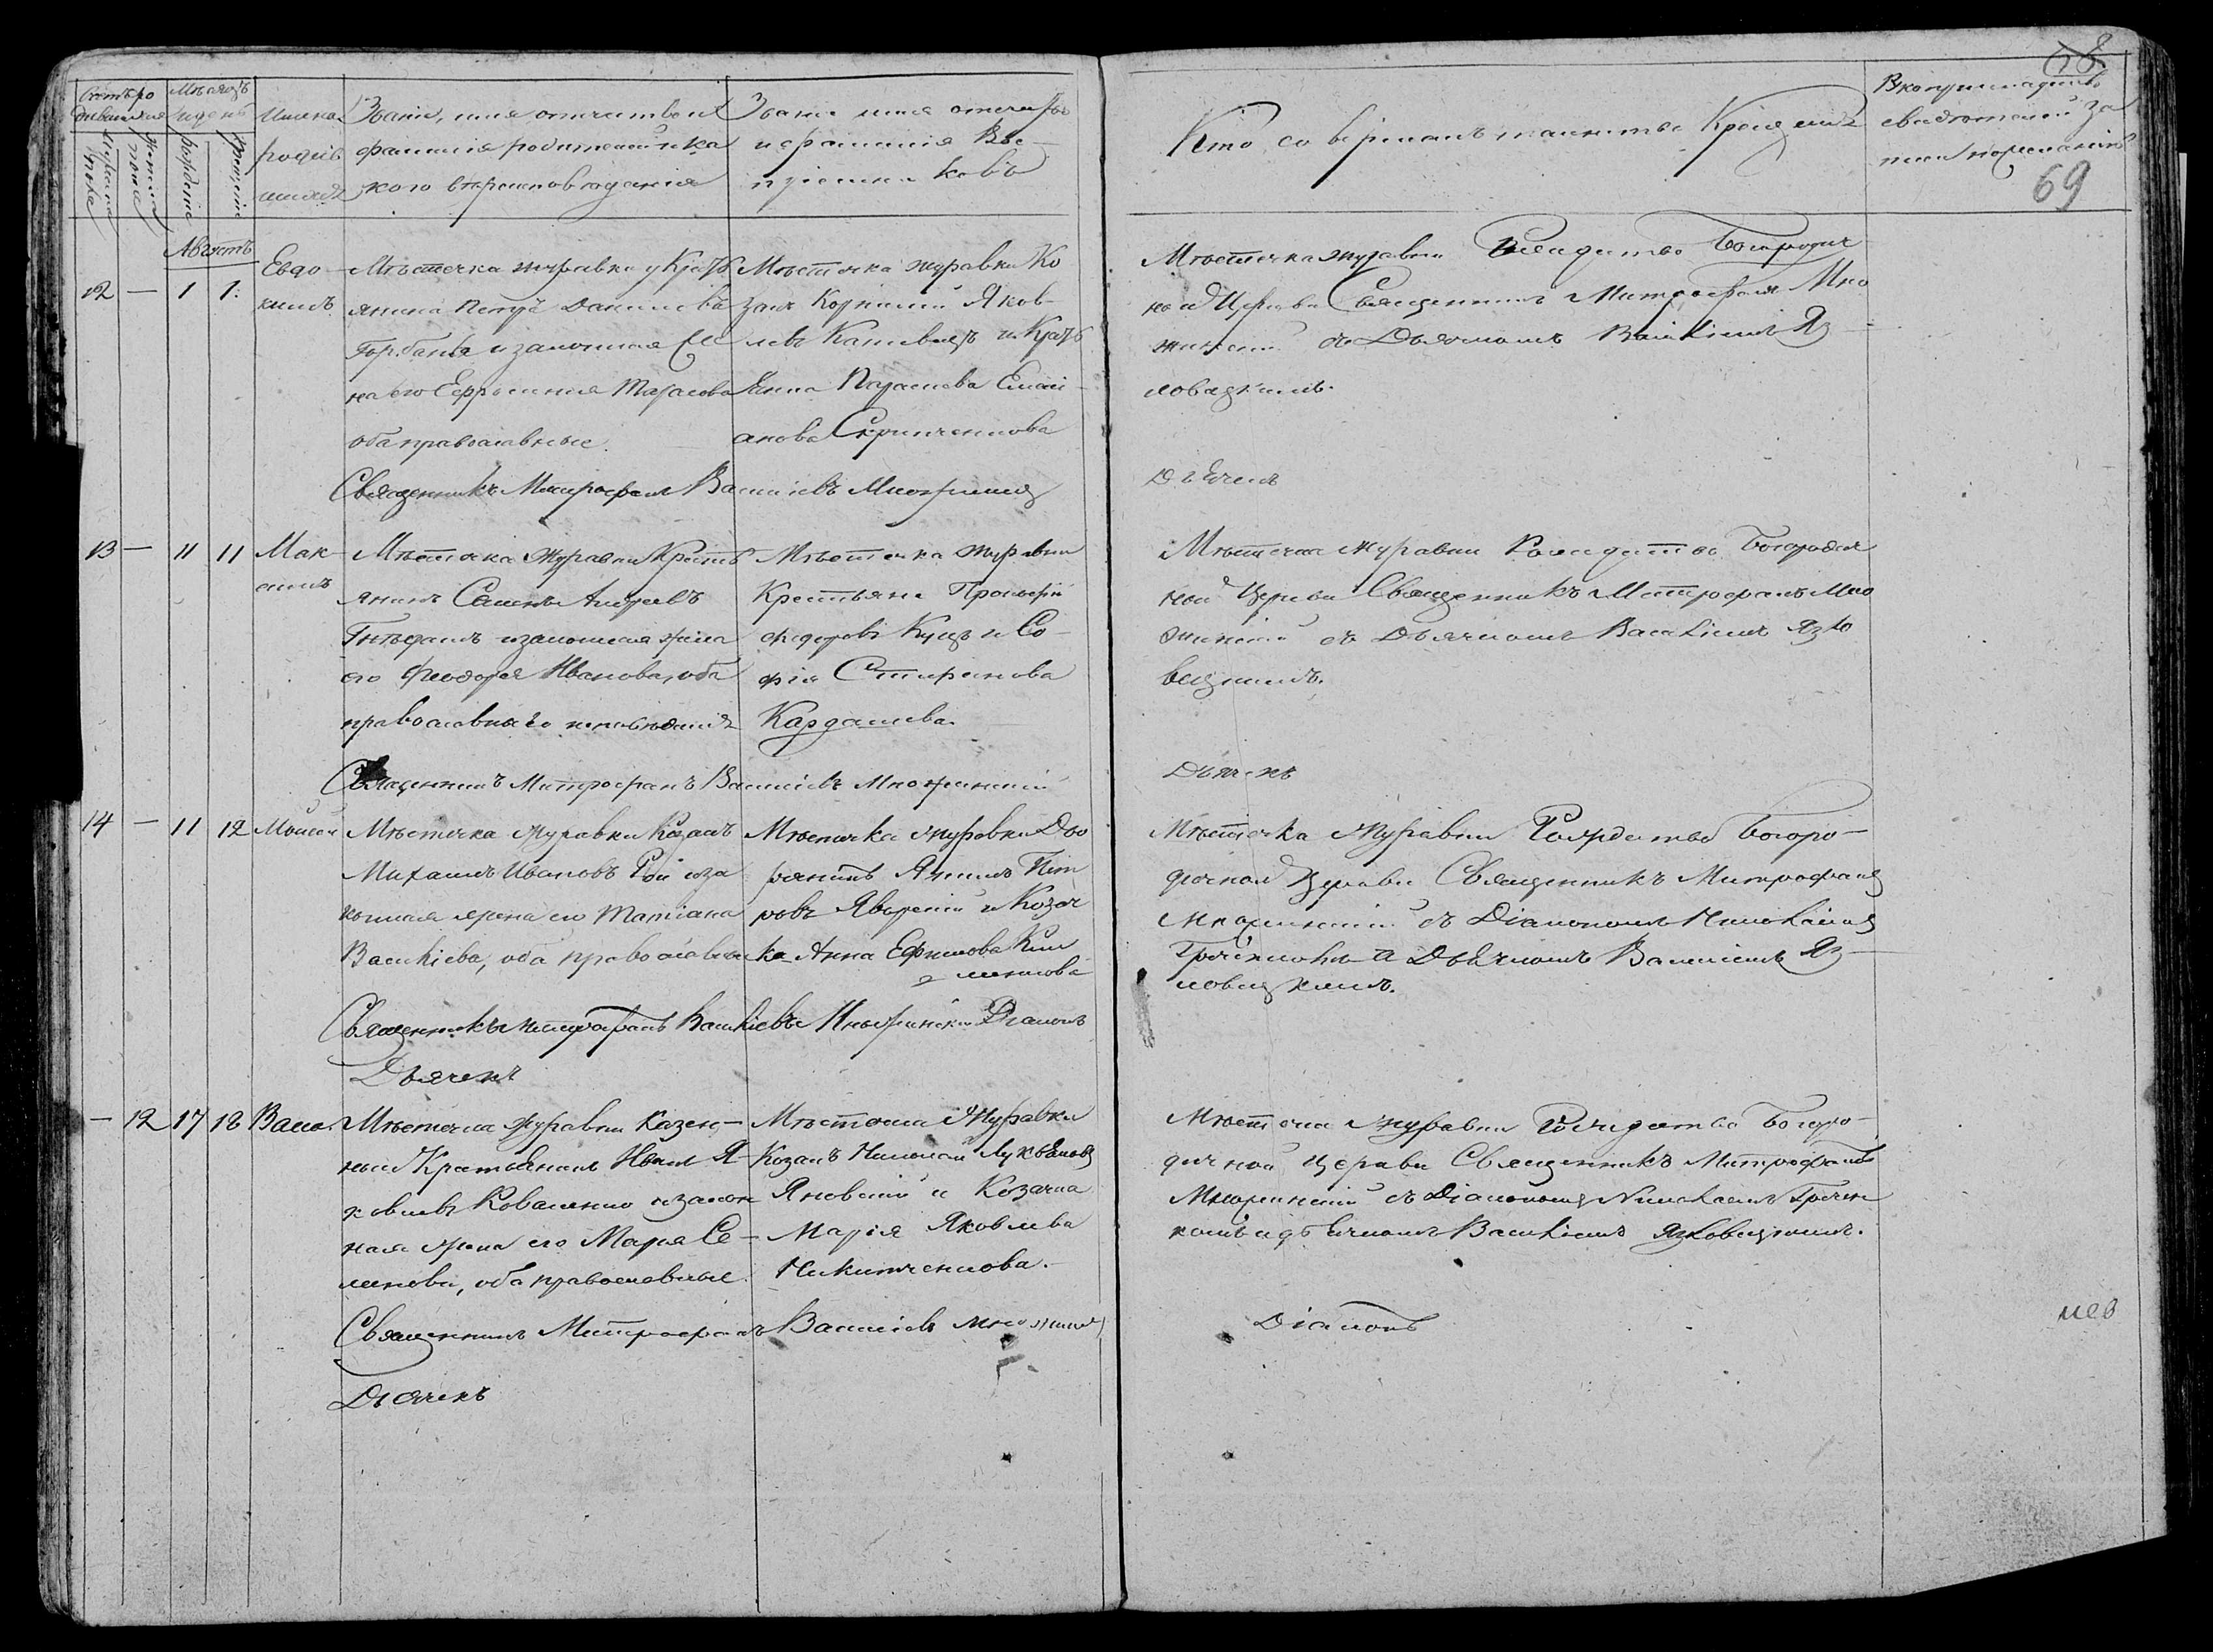 68
69
Счетъ ро
дившихся
Мѣсяцъ
и день
Мужеска
пола
Женска
пола
рожденіе
Крещеніе
Имена
родив
шихся
Званіе, имя отчество и
фамилія родителей и ка
кого вѣроисповѣданія
Званіе имя отчество
и фамилія Вос
пріемниковъ
Кто совершалъ таинство Крещенія
свидѣтелей за
писи по желанію
Августъ
12 — 1 1.
Евдо
кимъ
Мѣстечка Журавки Крестъ
янинъ Петръ Даниловъ
Горбань и законная же
на его Ефросинія Тарасова
оба православные.
Мѣстечка Журавки Ко
закъ Корнилій Яков
левъ и Крестъ
янка
Скрипченкова
Мѣстечка Журавки Рождество Богородич
ной Церкви Священникъ Митрофанъ Мно
жинскій съ Дьячкомъ Василіемъ Яз
ловецкимъ.
Священникъ Митрофанъ Василіевъ Множинскій
Дьячекъ
13 — 11 11
Мак
симъ
Мѣстечка Журавки Крестъ
янинъ Семенъ Андреевъ
и законная жена
его Феодора Иванова, оба
православнаго исповѣданія
Мѣстечка Журавки
Крестьяне Прокофій
Федоровъ Куцъ и Со
фія Стефанова
Кардашева.
Мѣстечка Журавки Рождество Богородич
ной Церкви Священникъ Митрофанъ Мно
жинскій съ Дьячкомъ Василіемъ Язло
вецкимъ.
Священникъ Митрофанъ Василіевъ Множинскій
Дьячекъ
14 — 11 12
Моисей
Мѣстечка Журавки Козакъ
Михаилъ Ивановъ Рой и за
конная жена его Татіана
Василіева, оба православные
Мѣстечка Журавки Дво
рянинъ Акимъ Пет
ровъ Яворскій и Козач
ка Анна Ефимова Кли
менкова
Мѣстечка Журавки Рождество Богоро
дичной Церкви Священникъ Митрофанъ
Множинскій съ Діакономъ Николаемъ
Гречкомъ и Дьячкомъ Василіемъ Яз
ловецкимъ.
Священникъ Митрофанъ Василіевъ Множинскій Діаконъ
Дьячекъ
— 12 17 18
Васса
Мѣстечка Журавки Казен
ный Крестьянинъ Иванъ Я
ковлевъ Коваленко и закон
ная жена его Марія Се
менова, оба православные.
Мѣстечка Журавки
Козакъ Николай Лукьяновъ
Яновскій и Козачка
Марія Яковлева
Никитченкова.
Мѣстечка Журавки Рождество Богоро
дичной Церкви Священникъ Митрофанъ
Множинскій съ Діакономъ Николаемъ Греч
комъ и дьячкомъ Василіемъ Язловецкимъ.
Священникъ Митрофанъ Василіевъ Множинскій
Діаконъ
Дьячекъ